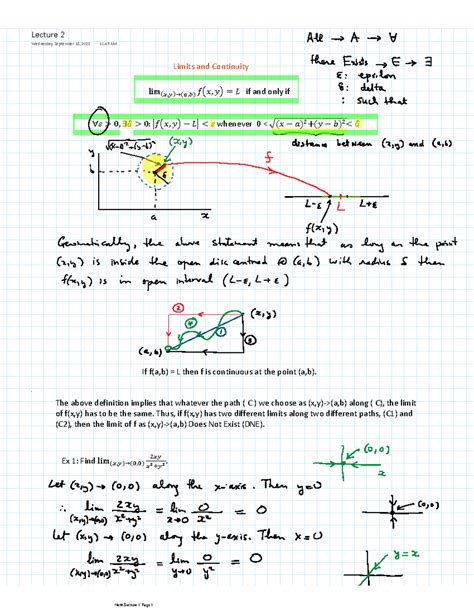 Lecture 2
Wednesday, September 14, 2021 11:47 AM
All → A → ∀
there Exists → E → ∃
ε: epsilon
δ: delta
: such that
Limits and Continuity
lim(x,y)→(a,b) f(x,y) = L if and only if
∀ε > 0, ∃δ > 0: |f(x,y) − L| < ε whenever 0 < √(x − a)²+(y − b)² < δ
distance between (x,y) and (a,b)
√(x-a)²+(y-b)²
(x,y)
f
y
b
δ
a
x
L-ε
L
L+ε
f(x,y)
Geometrically, the above statement means that as long as the point
(x,y) is inside the open disc centred @ (a,b) with radius δ then
f(x,y) is in open interval (L-ε, L+ε)
②
(x,y)
④
①
③
(a,b)
If f(a,b) = L then f is continuous at the point (a,b).
The above definition implies that whatever the path ( C) we choose as (x,y)->(a,b) along ( C), the limit
of f(x,y) has to be the same. Thus, if f(x,y) has two different limits along two different paths, (C1) and
(C2), then the limit of f as (x,y)->(a,b) Does Not Exist (DNE).
Ex 1: Find lim(x,y)→(0,0) 2xy/x²+y².
(0,0)
x
Let (x,y) → (0,0) along the x-axis. Then y=0
∴ lim (x,y)→(0,0) 2xy/x²+y² = lim x→0 0/x² = 0
(0,0)
Let (x,y) → (0,0) along the y-axis. Then x=0
lim (x,y)→(0,0) 2xy/x²+y² = lim y→0 0/y² = 0
y=x
Page 1